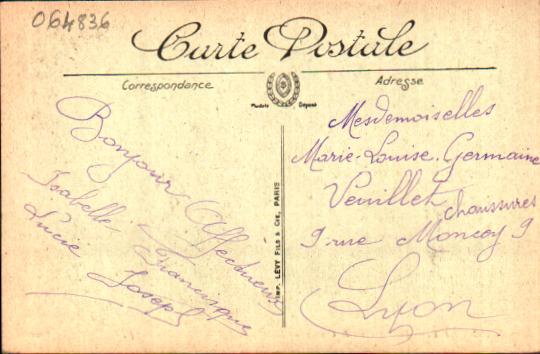 064836
Carte Postale
Correspondance
Adresse
Modèle Déposé
Bonjour Affectueux
Isabelle Francisque
Lucie Joseph
IMP. LÉVY FILS & CIE, PARIS
Mesdemoiselles
Marie-Louise, Germaine
Veuillet
chaussures
9 rue Moncey 9
Lyon